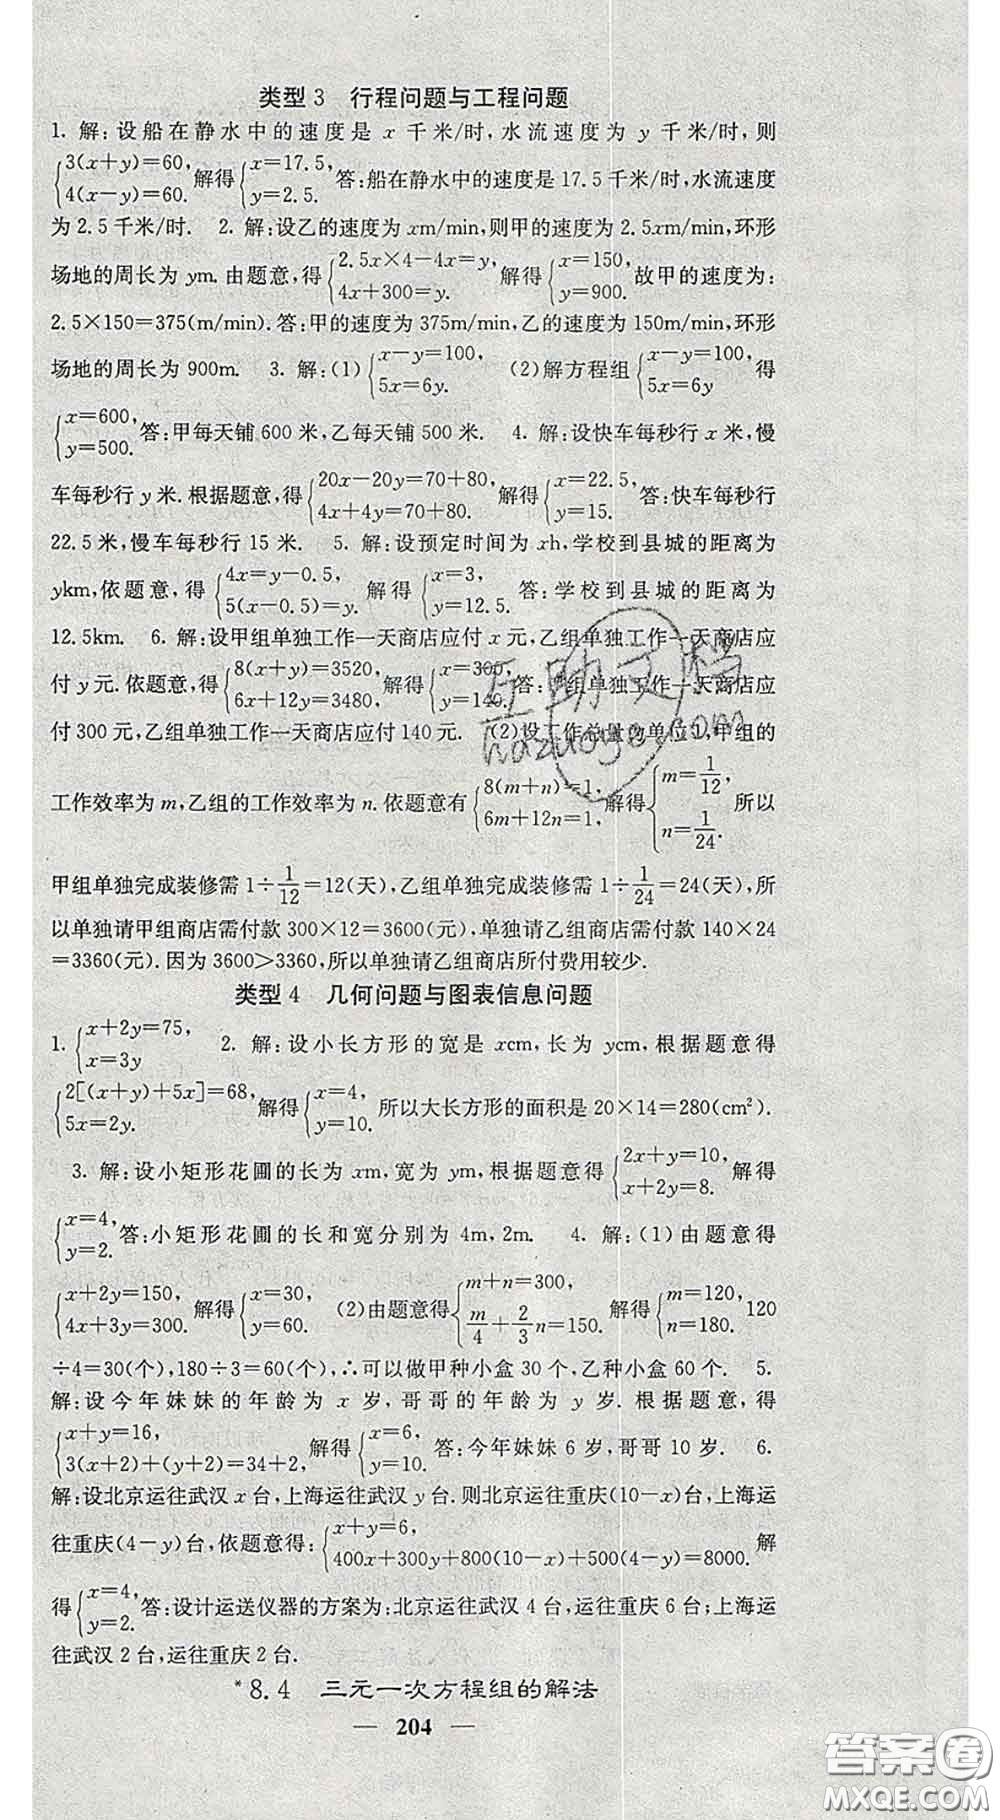 类型 3　行程问题与工程问题
1. 解:设船在静水中的速度是 x 千米/时,水流速度为 y 千米/时,则
{3(x+y)=60, 4(x-y)=60. 解得{x=17.5, y=2.5. 答:船在静水中的速度是 17.5 千米/时,水流速度
为 2.5 千米/时.　2. 解:设乙的速度为 xm/min,则甲的速度为 2.5xm/min,环形
场地的周长为 ym. 由题意,得{2.5x×4-4x=y, 4x+300=y. 解得{x=150, y=900. 故甲的速度为:
2.5×150=375(m/min). 答:甲的速度为 375m/min,乙的速度为 150m/min,环形
场地的周长为 900m.　3. 解:(1){x-y=100, 5x=6y.　(2)解方程组{x-y=100, 5x=6y 得
{x=600, y=500. 答:甲每天铺 600 米,乙每天铺 500 米.　4. 解:设快车每秒行 x 米,慢
车每秒行 y 米. 根据题意,得{20x-20y=70+80, 4x+4y=70+80. 解得{x=22.5, y=15. 答:快车每秒行
22.5 米,慢车每秒行 15 米.　5. 解:设预定时间为 xh,学校到县城的距离为
ykm,依题意,得{4x=y-0.5, 5(x-0.5)=y. 解得{x=3, y=12.5. 答:学校到县城的距离为
12.5km.　6. 解:设甲组单独工作一天商店应付 x 元,乙组单独工作一天商店应
付 y 元. 依题意,得{8(x+y)=3520, 6x+12y=3480, 解得{x=300, y=140. 答:甲组单独工作一天商店应
付 300 元,乙组单独工作一天商店应付 140 元.　(2)设工作总量的单位 1,甲组的
工作效率为 m,乙组的工作效率为 n. 依题意有{8(m+n)=1, 6m+12n=1, 解得{m=1/12, n=1/24. 所以
甲组单独完成装修需 1÷1/12=12(天),乙组单独完成装修需 1÷1/24=24(天),所
以单独请甲组商店需付款 300×12=3600(元),单独请乙组商店需付款 140×24
=3360(元). 因为 3600>3360,所以单独请乙组商店所付费用较少.
类型 4　几何问题与图表信息问题
1. {x+2y=75, x=3y　2. 解:设小长方形的宽是 xcm,长为 ycm,根据题意得
{2[(x+y)+5x]=68, 5x=2y. 解得{x=4, y=10. 所以大长方形的面积是 20×14=280(cm²).
3. 解:设小矩形花圃的长为 xm,宽为 ym,根据题意得{2x+y=10, x+2y=8. 解得
{x=4, y=2. 答:小矩形花圃的长和宽分别为 4m,2m.　4. 解:(1)由题意得
{x+2y=150, 4x+3y=300. 解得{x=30, y=60.　(2)由题意得{m+n=300, m/4+2/3n=150. 解得{m=120, n=180. 120
÷4=30(个),180÷3=60(个),∴可以做甲种小盒 30 个,乙种小盒 60 个.　5.
解:设今年妹妹的年龄为 x 岁,哥哥的年龄为 y 岁. 根据题意,得
{x+y=16, 3(x+2)+(y+2)=34+2, 解得{x=6, y=10. 答:今年妹妹 6 岁,哥哥 10 岁.　6.
解:设北京运往武汉 x 台,上海运往武汉 y 台. 则北京运往重庆(10-x)台,上海运
往重庆(4-y)台,依题意得:{x+y=6, 400x+300y+800(10-x)+500(4-y)=8000. 解
得{x=4, y=2. 答:设计运送仪器的方案为:北京运往武汉 4 台,运往重庆 6 台;上海运
往武汉 2 台,运往重庆 2 台.
*8.4　三元一次方程组的解法
— 204 —
互助文档
hazuoye.com
答案圈
MXQE.COM